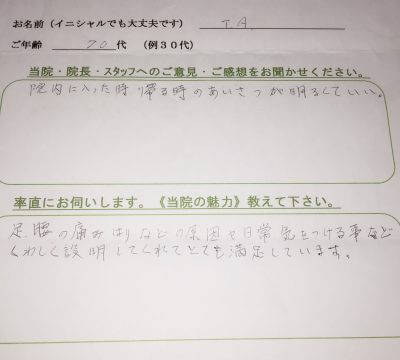 お名前（イニシャルでも大丈夫です） T.A.
ご年齢 70 代 （例３０代）
当院・院長・スタッフへのご意見・ご感想をお聞かせください。
院内に入った時 帰る時のあいさつが明るくていい。
率直にお伺いします。《当院の魅力》教えて下さい。
足、腰の痛み はりなどの原因や日常気をつける事など
くわしく説明してくれてとても満足しています。